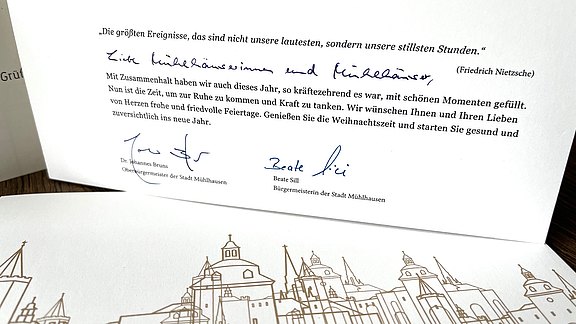 Grüß
„Die größten Ereignisse, das sind nicht unsere lautesten, sondern unsere stillsten Stunden.“
(Friedrich Nietzsche)
Liebe Mühlhäuserinnen und Mühlhäuser,
Mit Zusammenhalt haben wir auch dieses Jahr, so kräftezehrend es war, mit schönen Momenten gefüllt.
Nun ist die Zeit, um zur Ruhe zu kommen und Kraft zu tanken. Wir wünschen Ihnen und Ihren Lieben
von Herzen frohe und friedvolle Feiertage. Genießen Sie die Weihnachtszeit und starten Sie gesund und
zuversichtlich ins neue Jahr.
Beate Sill
Dr. Johannes Bruns
Oberbürgermeister der Stadt Mühlhausen
Beate Sill
Bürgermeisterin der Stadt Mühlhausen